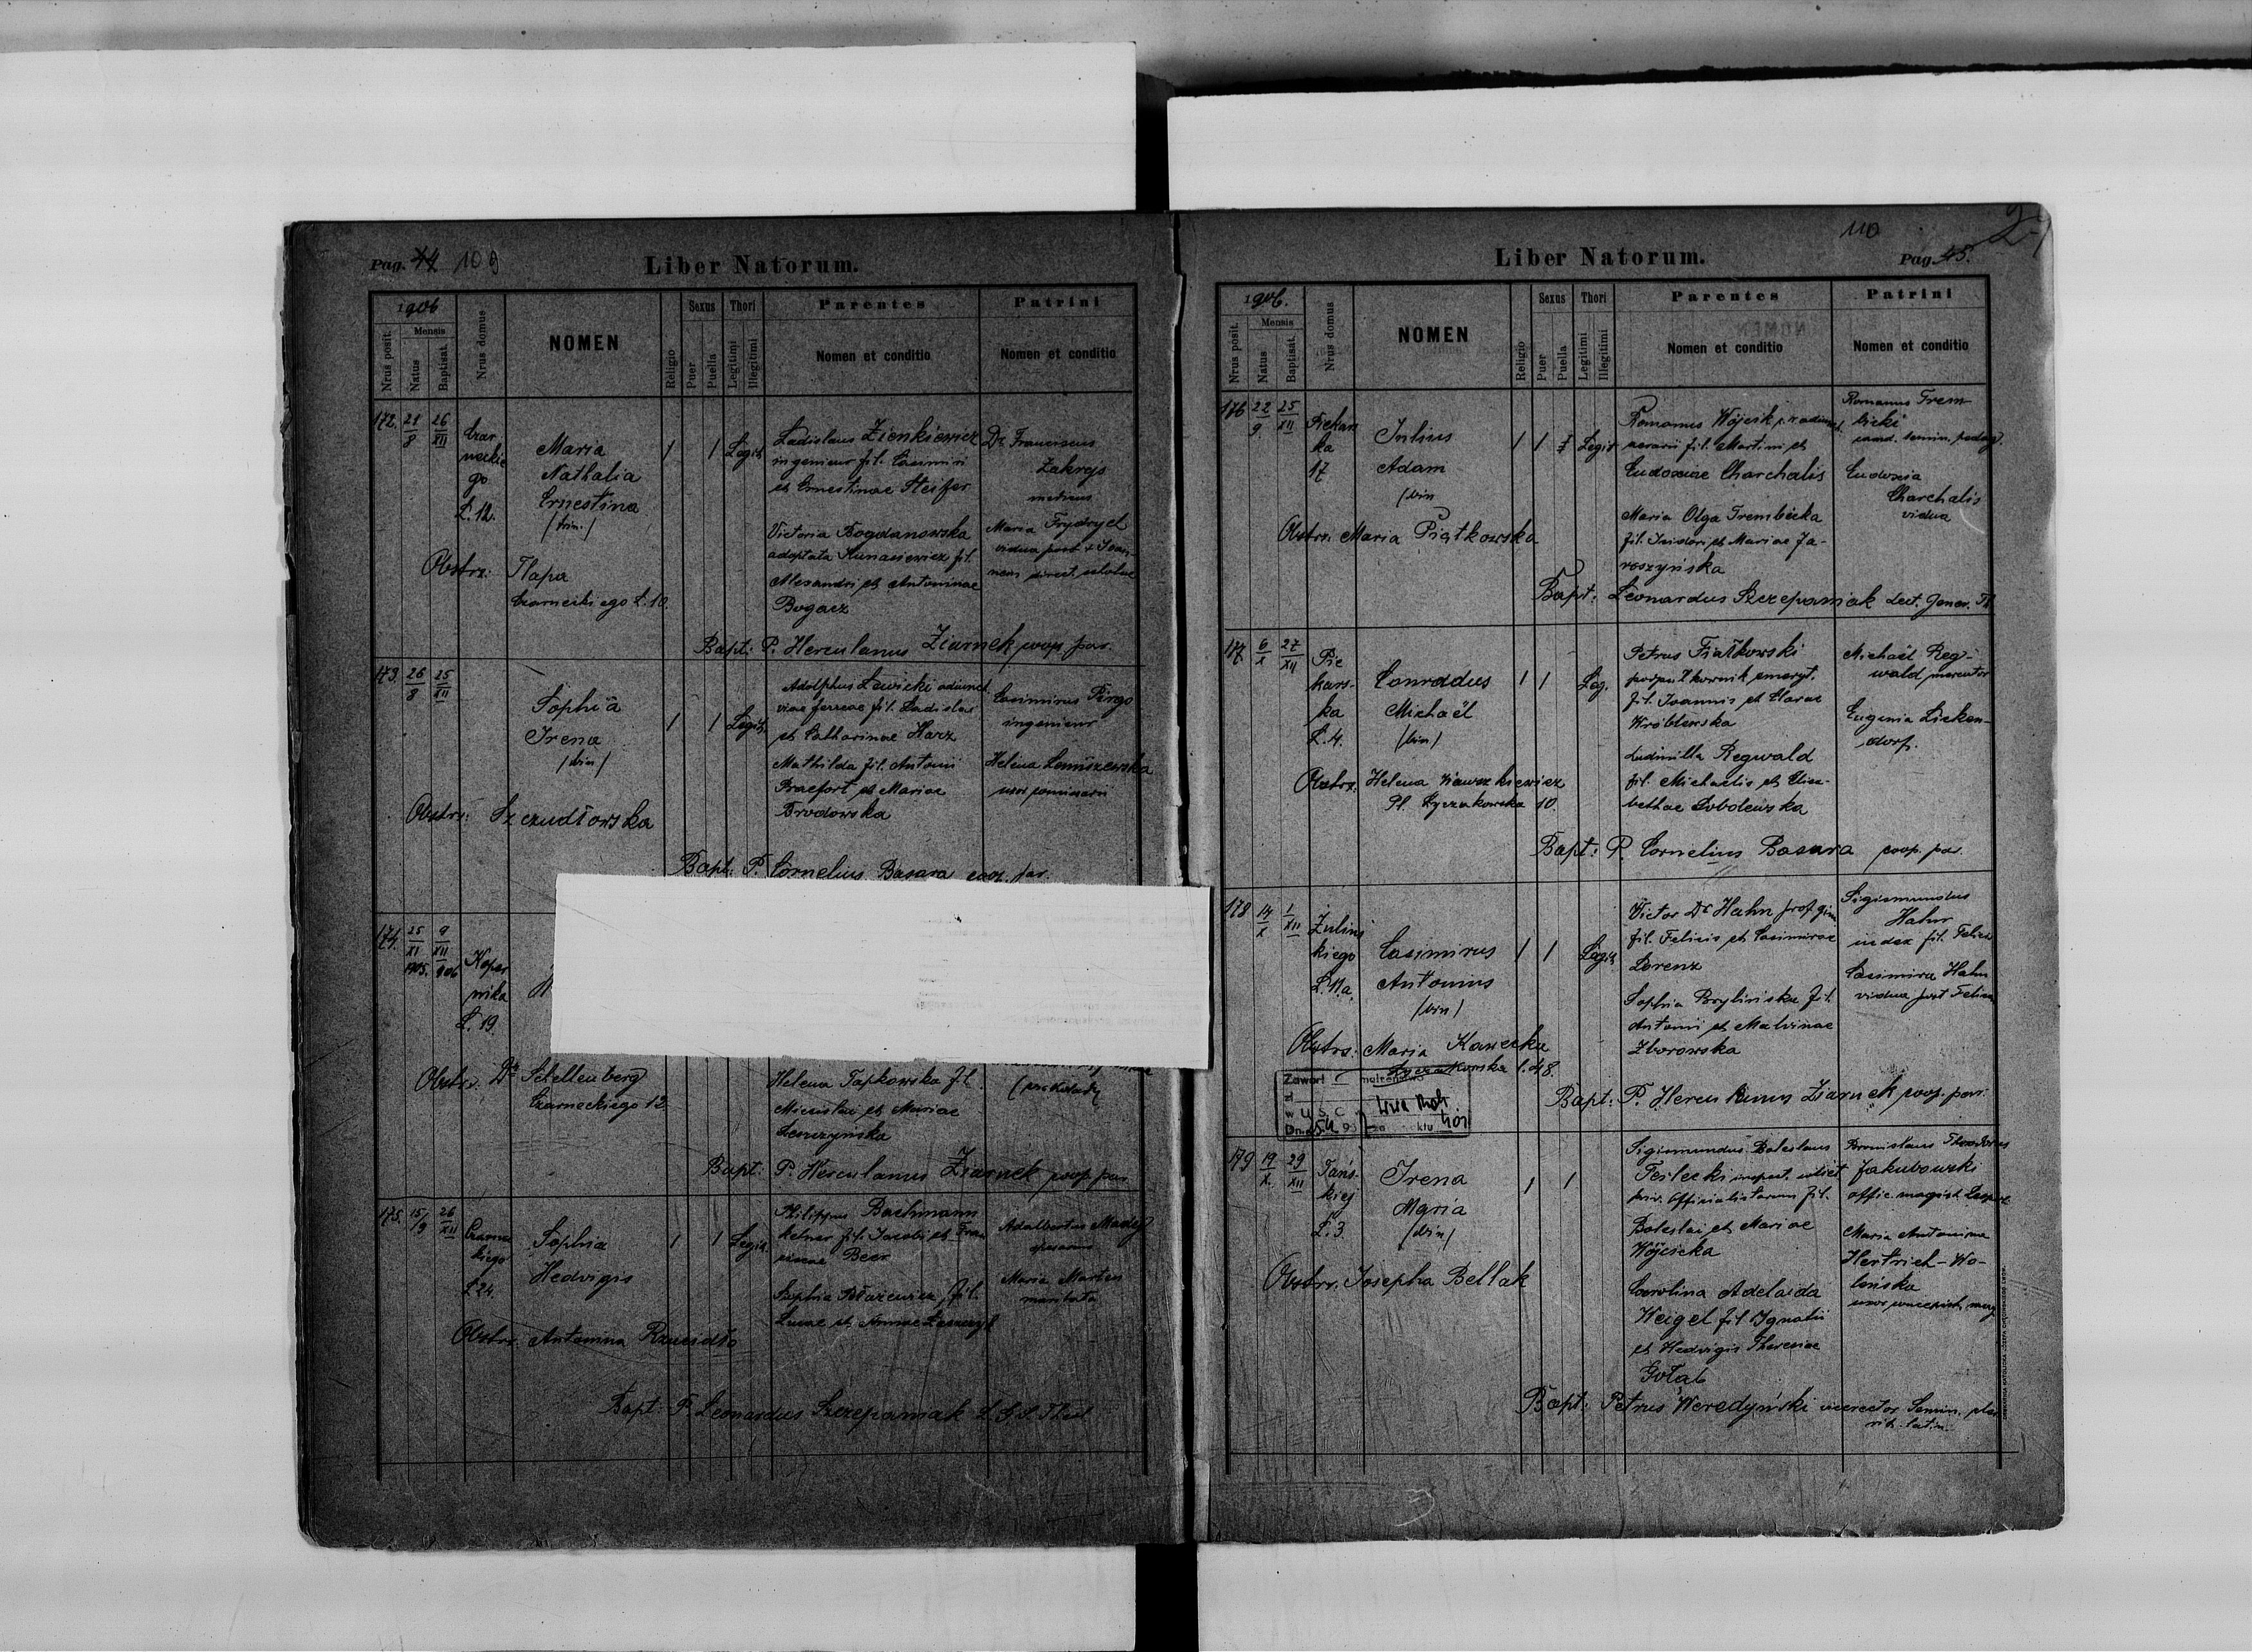 Pag. 44 109
Liber Natorum.
1906
Nrus posit.
Mensis
Natus
Baptisat.
Nrus domus
NOMEN
Religio
Sexus
Puer
Puella
Thori
Legitimi
Illegitimi
Parentes
Nomen et conditio
Patrini
Nomen et conditio
172. 21/8 26/XII
Czar
neckie
go
L. 12.
Maria
Nathalia
Ernestina
(trin.)
1 1 Legit.
Ladislaus Zienkiewicz
ingenieur fil. Casimiri
et Ernestinae Steifer
Victoria Bogdanowska
adoptata Kunasiewicz fil.
Alexandri et Antoninae
Bogacz
Dr. Franciscus
Zakrejs
medicus
Maria Frydrych
vidua post + Joan-
nem direct.
Obstrx: Tlapa
Czarneckiego L. 10.
Bapt: P. Herculanus Ziarnek coop. par.
173. 26/8 25/XII
Sophia
Irena
(bin)
1 1 Legit.
Adolphus Lewicki adiunct.
viae ferreae fil. Ladislai
et Catharinae Harz
Mathilda fil. Antonii
Praefort et Mariae
Brodowska
Casimirus Pirgo
ingenieur
Helena Lewiszewska
uxor
Obstrx: Szczudłowska
Bapt: P. Cornelius Basara coop. par.
174. 25/XI 1905. 9/XII 906
Koper
nika
L. 19.
Obstr. Dr Schellenberg
Czarneckiego 12
Helena Tapkowska fil.
Miecislai et Mariae
Leszczyńska
Bapt: P. Herculanus Ziarnek coop. par.
175. 15/9 26/XII
Czarnec
kiego
L 24.
Sophia
Hedvigis
1 1 Legit.
Philippus Bachmann
kelner fil. Jacobi et Fran
ciscae Beer
Sophia Błażewicz fil.
Lucae et Annae Leszczyk
Adalbertus Madej
Maria Marten
maritata
Obstrx. Antonina Rzucidło
Bapt: P. Leonardus Szczepaniak L. G. S. Theol
110
Liber Natorum.
Pag. 45.
1906.
Nrus posit.
Mensis
Natus
Baptisat.
Nrus domus
NOMEN
Religio
Sexus
Puer
Puella
Thori
Legitimi
Illegitimi
Parentes
Nomen et conditio
Patrini
Nomen et conditio
176 22/9 25/XII
Piekars
ka
17
Julius
Adam
(bin
1 1 Legit
Romanus Wójcik
aerarii fil. Martini et
Eudoxiae Charchalis
Maria Olga Trembicka
fil. Isidori et Mariae Ja-
roszyńska
Romanus Trem-
bicki
cand. semin. pedag.
Eudoxia
Charchalis
vidua
Obstrx. Maria Piątkowska
Bapt: Leonardus Szczepaniak Lect. Gener. Th.
177 6/X 27/XII
Pie
kars-
ka
L. 4.
Conradus
Michaël
(bin)
1 1 Leg.
Petrus Fiałkowski
podpułkownik emeryt.
fil. Joannis et Clarae
Wróblewska
Ludmilla Regwald
fil. Michaelis et Elisa-
bethae Sobolewska
Michaël Reg-
wald mercator
Eugenia Licken-
dorf.
Obstrx. Helena Hawszkiewicz
Pl. Łyczakowska 10.
Bapt: P. Cornelius Basara coop. par.
178 14/X 1/XII
Zulins
kiego
L. 11a.
Casimirus
Antonius
(bin)
1 1 Legit.
Victor Dr Hahn prof. gim
fil. Felicis et Casimirae
Lorenz
Sophia Brylińska fil.
Antonii et Malvinae
Zborowska
Sigismundus
Hahn
iudex fil. Felicis
Casimira Hahn
vidua post Felicem
Obstrx. Maria Kawecka
Łyczakowska l. 48.
Zawarł małżeństwo
w U S C
Dn.
Bapt: P. Herculanus Ziarnek coop. par.
179 19/X. 29/XII
Tańs-
kiej
L. 3.
Irena
Maria
(bin)
1 1
Sigismundus Boleslaus
Teslecki inspect.
priv. Officialistarum fil.
Boleslai et Mariae
Wójcicka
Carolina Adelaida
Weigel fil. Ignatii
et Hedvigis Theresiae
Gołąb
Bronislaus Theodorus
Jakubowski
offic. magist. Leopol.
Maria Antonina
Hertrich-Wo-
leńska
uxor concepist. mag.
Obstrx. Josepha Bellak
Bapt: Petrus Weredyński vicerector Semin.
rit. latini.